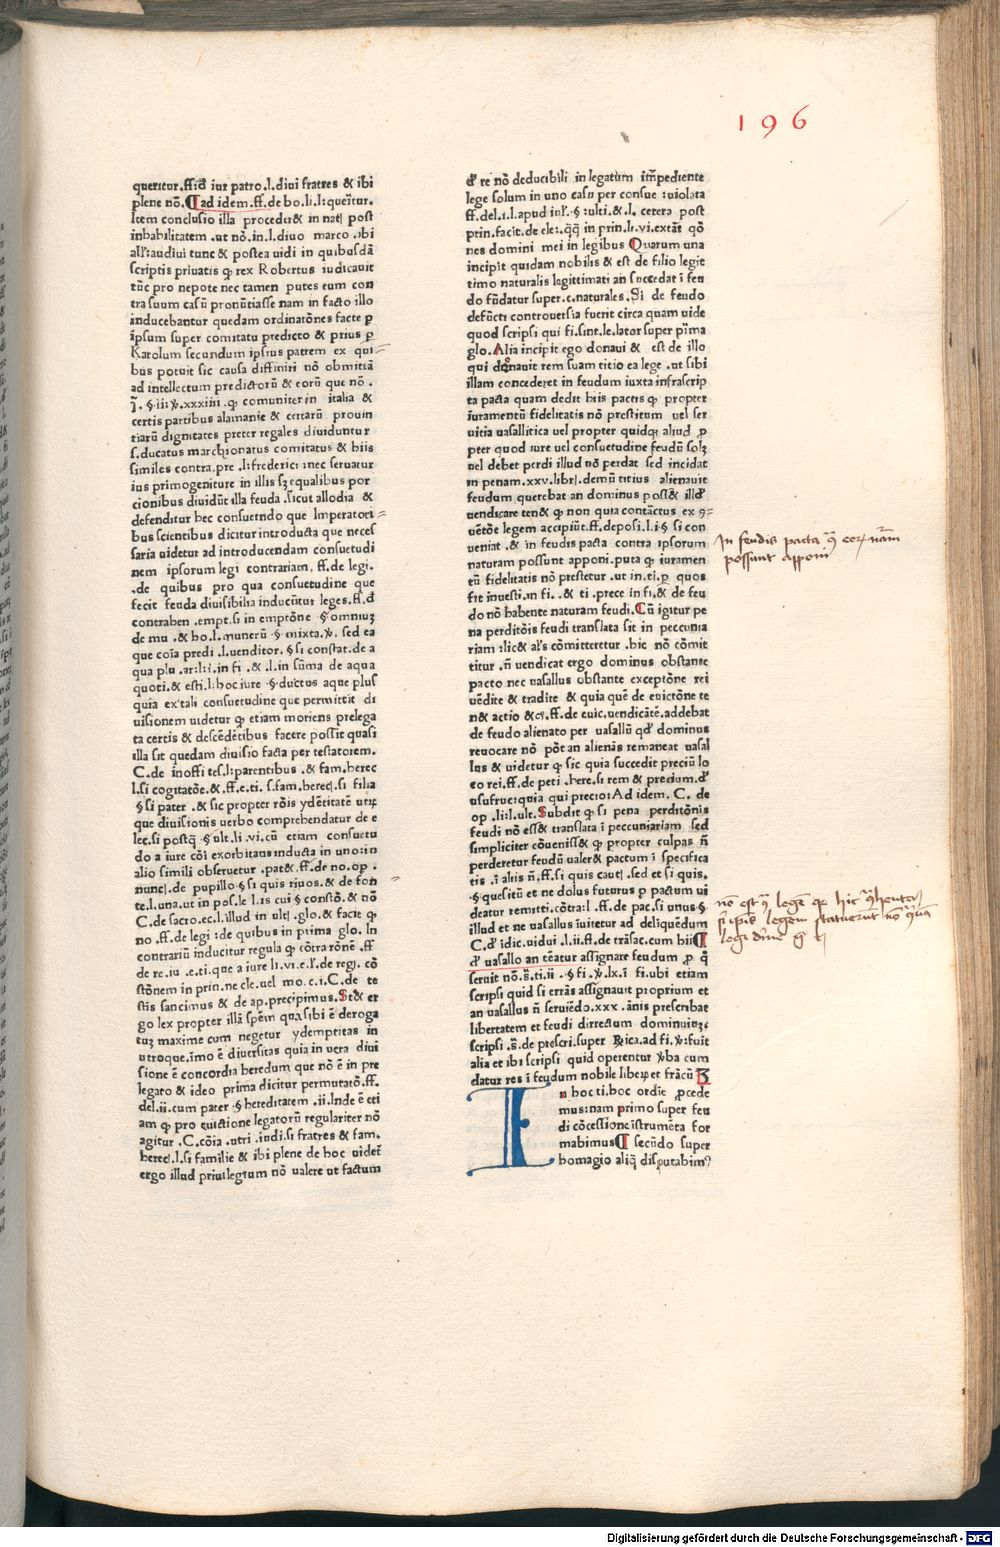 196
queritur.ff̄id iur patro.l.diui fratres & ibi
plene nō.¶ad idem.ff.de bo.li.l:querit̄ur.
Item conclusio illa procedit& in nat post
inhabilitatem .ut nō.in.l.diuo marco .ibi
audiui tunc & postea uidi in quibusdā
scriptis priuatis ꝙ rex Robertus iudicauit
tūc pro nepote nec tamen putes eum con
tra suum casū pronūtiasse nam in facto illo
inducebantur quedam ordinatōnes facte ꝑ
ipsum super comitatu predicto & prius ꝑ
Karolum secundum ipsius patrem ex qui-
bus potuit sic causa diffiniri nō obmittā
ad intellectum predictorū & eorū que nō .
.xxxiiii.ꝙ comuniter in italia &
certis partibus alamanie & certarū prouin
tiarū dignitates preter regales diuiduntur
s.ducatus marchionatus comitatus & hiis
similes contra.pre .l:frederici :nec seruatur
ius primogeniture in illis sꝫ equalibus por
cionibus diuidūt illa feuda .sicut allodia &
defenditur hec consuetudo que Imperatori-
bus scientibus dicitur introducta que neces
saria uidetur ad introducendam consuetudi
nem ipsorum legi contrariam. ff.de legi.
.de quibus pro qua consuetudine que
fecit feuda diuisibilia inducūtur leges.ff.đ
contraben .empt.si in emptōne .§.omniuꝫ
de mu .& bo.l.munerū .§.mixta. sed ea
que coīa predi .l.uenditor. § si constat.de a
qua plu .ar:l:i.in fi .& .l.in sūma de aqua
quoti.& esti.l:hoc iure .§.ductus aque plus
quia ex tali consuetudine que permittit di
uisionem uidetur ꝙ etiam moriens prelega
ta certis & descēdētibus facere possit quasi
illa sit quedam diuisio facta per testatorem.
C.de inoffi tes.l:parentibus .& fam.herec
l.si cogitatōe.& .ff.e.ti. s.fam.herec.si filia
§ si pater .& sic propter rōis ydētitatē
que diuisionis uerbo comprehendatur de e
lec.si postꝙ .§.ult.li.vi.cū etiam consuetu
do a iure cōi exorbitans inducta in uno:in
alio simili obseruetur .pat&.ff.de no.op .
nunc.de pupillo.§ si quis riuos.& de fon
te.l.una.ut in pos.le l.is cui § constō.& nō
C.de sacro.ec.l.illud in ult .glo.& facit ꝙ
no .ff.de legi :de quibus in prima glo. In
contrariū inducitur regula ꝙ cōtra rōnē .ff
de re.iu .e.ti.que a iure li.vi.e. de reg. cō
stōnem in prin.ne cle.uel mo.c.i.C.de te
stis sancimus & de ap.precipimus.Sed& er
go lex propter illā spēm qua sibi ē deroga
tuꝫ maxime cum negetur ydemptitas in
utroque.imo ē diuersitas quia in uera diui
sione ē concordia heredum que nō ē in pre
legato & ideo prima dicitur permutatō.ff.
del.ii.cum pater .§ hereditatem .ii.Inde ē eti
am ꝙ pro euictione legatorū regulariter nō
agitur .C.cōia .utri .iudi.si fratres & fam.
herec.l.si familie & ibi plene de hoc uidet̄
ergo illud priuilegium nō ualere ut factum
đ re nō deducibili in legatum imꝑediente
lege solum in uno casu per consue :uiolata
ff.del.i.l.apud iul. .§ :ulti.& .l. cetera post
prin.facit.de ele:.ꝗꝗ in prin.li.vi.extāt qō
nes domini mei in legibus Quarum una
incipit quidam nobilis & est de filio legit
timo naturalis legittimati an succedat ī feu
do fūdatur super.c.naturales.Si de feudo
defūcti controuersia fuerit circa quam uide
quod scripsi qui fi.sint.le.lator super prima
glo.Alia incipit ego donaui & est de illo
qui donauit rem suam titio ea lege .ut sibi
illam concederet in feudum iuxta infrascrip
ta pacta quam dedit hiis pactis ꝙ propter
iuramentū fidelitatis nō prestitum uel ser
uitia uasallitica uel propter quidꝙ aliud ꝓ
pter quod iure uel consuetudine feudū sol&
uel debet perdi illud nō perdat sed incidat
in penam.xxv.librꝝ.demū titius alienauit
feudum querebat an dominus post& illđ
uendicare ten& ꝙ non quia contāctus ex ꝯ-
uētōe legem accipiūt.ff.deposi.l.i.§ si con
ueniat .& in feudis pacta contra ipsorum
naturam possunt apponi.puta ꝙ iuramen
tū fidelitatis nō prestetur .ut in.ti.ꝑ quos
fit inuesti.in fi. .& ti .prece in fi.& de feu
do nō habente naturam feudi.Cū igitur pe
na perditōis feudi translata sit in peccunia
riam :lic& aľs cōmitteretur .hic nō cōmit
titur .ñ uendicat ergo dominus obstante
pacto nec uasallus obstante exceptōne rei
uēdite & tradite & quia quē de euictōne te
n& actio &c.ff.de euic.uendicātē.addebat
de feudo alienato per uasallū qđ dominus
reuocare nō pōt an alienās remaneat uasal
lus & uidetur ꝙ sic quia succedit preciū lo
co rei.ff.de peti .here.si rem & precium.đ
usufruc:quia qui precio:Ad idem. C. de
op .li:l.ult.Subdit ꝙ si pena perditōnis
feudi nō ess& translata ī peccuniariam sed
simpliciter cōueniss& ꝙ propter culpas ñ
perderetur feudū ualer& pactum ī specifica
tis .ī aliis ñ.ff.si quis caut.sed et si quis.
.§.quesitū et ne dolus futurus ꝑ pactum ui
deatur remitti.cōtra:l .ff.de pac.si unus §
illud et ne uasallus iuitetur ad deliquēdum
C.đ idic.uidui .l.ii.ff.de trāsac.cum hii¶
đ uasallo an tēatur assignare feudum ꝓ ꝗ
seruit nō.s̄.ti.ii . § fi..lx.ī fi.ubi etiam
scripsi quid si errās assignauit proprium et
an uasallus ñ seruiēdo.xxx .ānis prescribat
libertatem et feudi dirrectum dominiuꝫ:
scripsi .s̄.de prescri.super Rica.ad fi.:fuit
alia et ibi scripsi quid operentur ꝟba cum
datur res ī feudum nobile liberet frācū
In hoc ti.hoc ordīe ꝓcede
mus:nam primo super feu
di cōcessione īstrumēta for
mabimus¶ secūdo super
homagio aliq̄ disputabimꝰ
In feudis pacta ꝯ̄ eorꝝ nām
possunt apponi
nō est legē
legem statuerūt nō
Digitalisierung gefördert durch die Deutsche Forschungsgemeinschaft - DFG